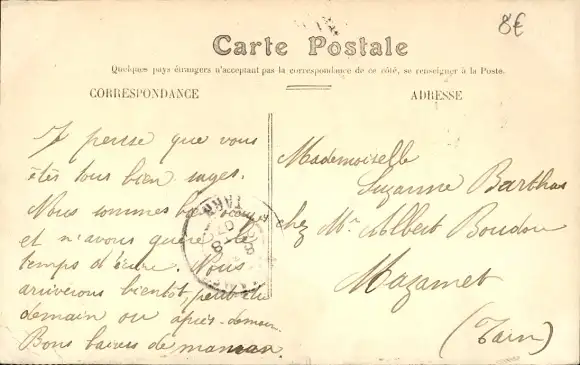 8€
Carte Postale
Quelques pays étrangers n'acceptant pas la correspondance de ce côté, se renseigner à la Poste.
CORRESPONDANCE
ADRESSE
Je pense que vous
êtes tous bien sages.
Nous sommes bien occupés
et n'avons guère le
temps d'écrire. Nous
arriverons bientôt, peut-être
demain ou après-demain.
Bons baisers de maman.
Mademoiselle
Suzanne Barthas
chez Mr Albert Boudou
Mazamet
(Tarn)
TARN